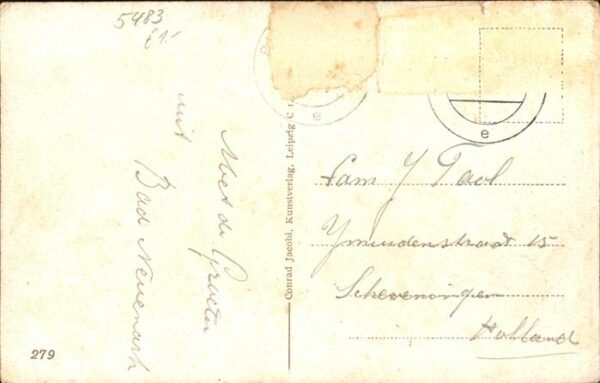 5483
£1.-
Met de Groeten
uit
Bad Neuenarh
Conrad Jacobi, Kunstverlag, Leipzig C 1.
Fam J Taal
Ymuidenstraat 15
Scheveningen
Holland
279
e
e